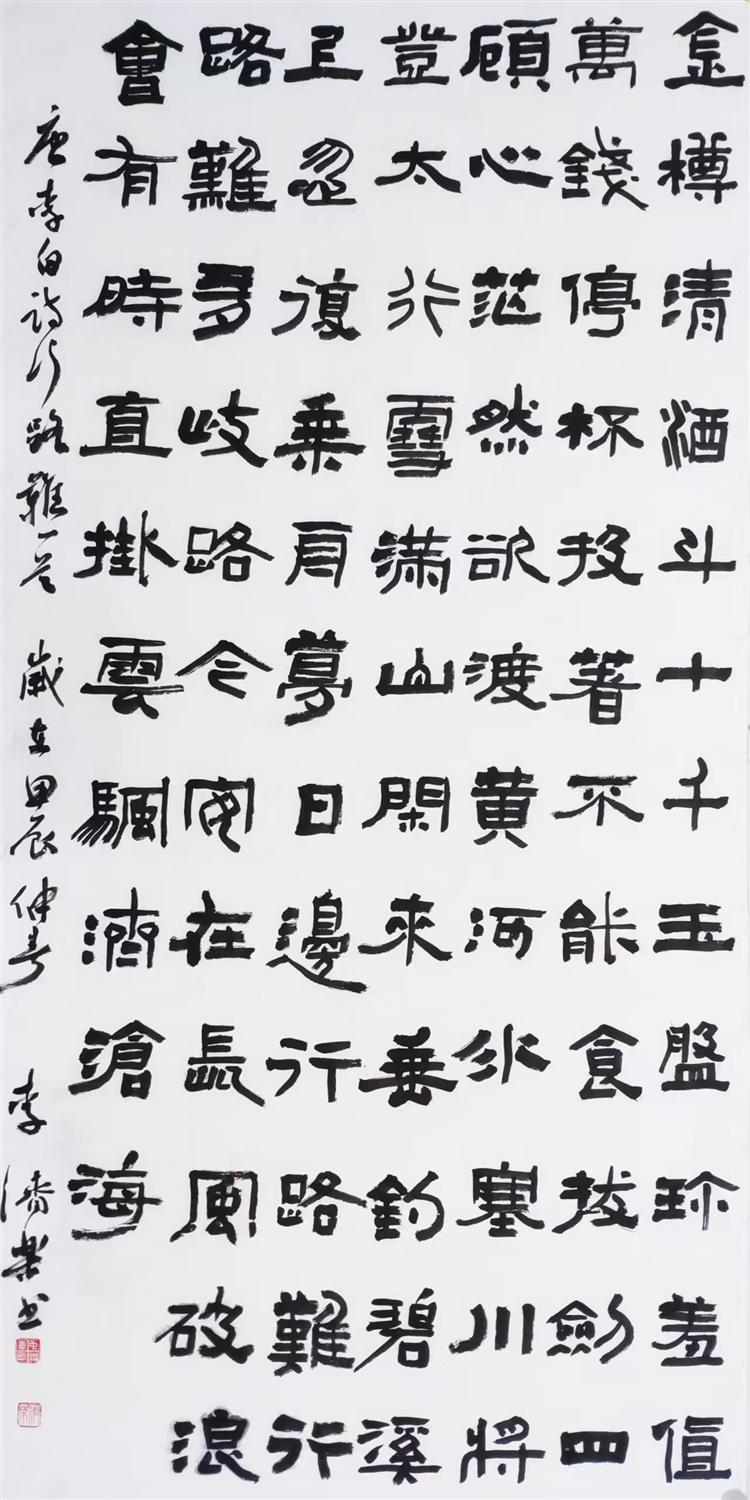 金樽清酒斗十千玉盤珍羞值
萬錢停杯投著不能食拔劍四
顧心茫然欲渡黃河冰塞川將
登太行雪滿山閑來垂釣碧溪
上忽復乘月夢日邊行路難行
路難多歧路今安在長風破浪
會有時直掛雲颿濟滄海
唐李白詩行路難一首 歲在甲辰仲春 李樂书